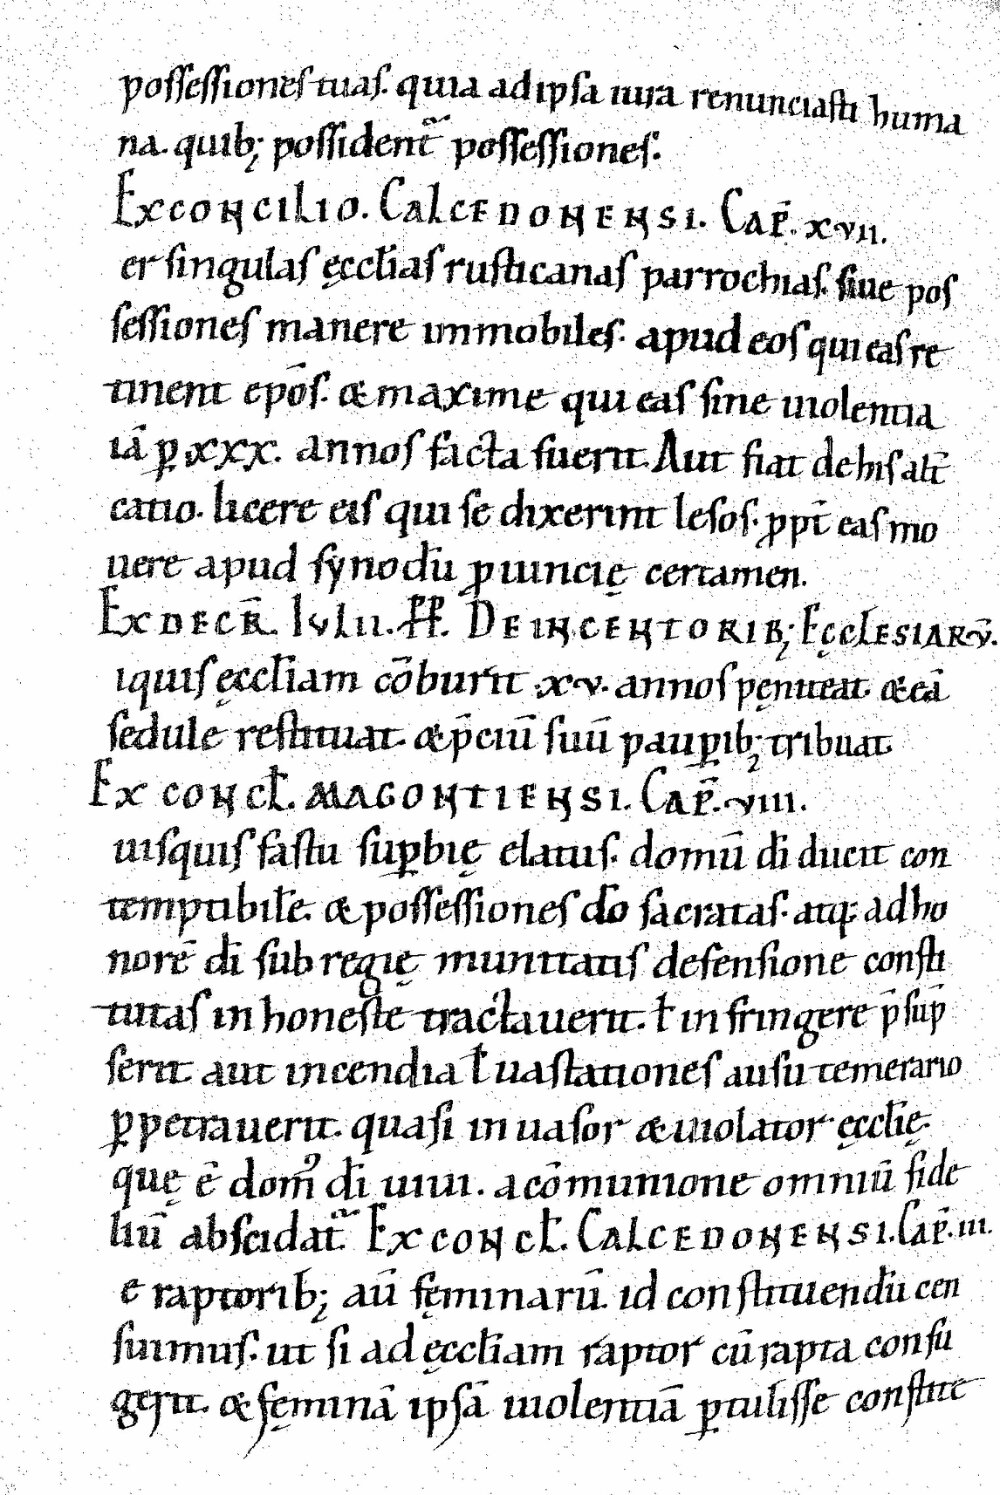 possessiones tuas. quia ad ipsa iura renunciasti huma
na. quib; possident᷒ possessiones.
Ex concilio. Calcedonensi. Cap̄. xvii.
er singulas ęccl̄ias rusticanas parrochias. siue pos
sessiones manere immobiles. apud eos qui eas re
tinent ep̄os. & maxime qui eas sine uiolentia
iā ꝑ xxx. annos facta fuerit. Aut fiat de his alt̄
catio. licere eis qui se dixerint lesos. ꝓpt̄ eas mo
uere apud synodū ꝓuincię certamen.
Ex decr̄. Iulii. pp. De incentorib; Ęcclesiarū.
iquis ęccl̄iam cōburit xv. annos pęniteat. & eā
sedule restituat. & p̄ciū suū pauꝑib; tribuat
Ex concl̄. magontiensi. Cap̄. viii.
uisquis fastu suꝑbię elatus. domū dī ducit con
temptibilē. & possessiones dō sacratas. atq; ad ho
norē dī sub regię munitatis defensione consti
tutas in honeste tractauerit. ł infringere p̄sūp
serit. aut incendia ł uastationes ausu temerario
ꝑpetrauerit. quasi inuasor & uiolator ęccl̄ię.
quę ē dom᷒ dī uiui. a cōmunione omniū fide
liū abscidat᷒. Ex concl̄. Calcedonensi. Cap̄. iii.
e raptorib; aū fęminarū. id constituendū cen
suimus. ut si ad ęccl̄iam raptor cū rapta confu
gerit. & fęminā ipsā uiolentiā ꝑtulisse constite